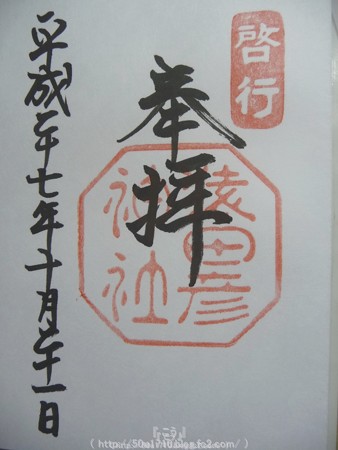 啓行
奉拝
猿田彦
神社
平成二十七年十月二十一日
( http://50s1910.blog.fc2.com/ )